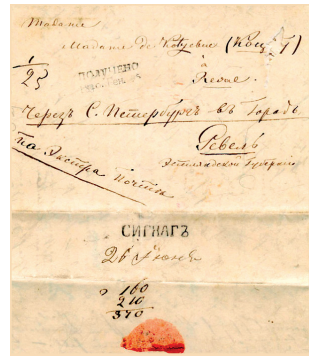 Madame
Madame de Kotzebue (Коцебу)
à
Reval
1/23
ПОЛУЧЕНО
Черезъ С. Петербургъ въ Городъ
Ревель
Эстляндской Губернiи
На Экстра Почтѣ
СИГНАГЪ
26 Iюня
160
210
370